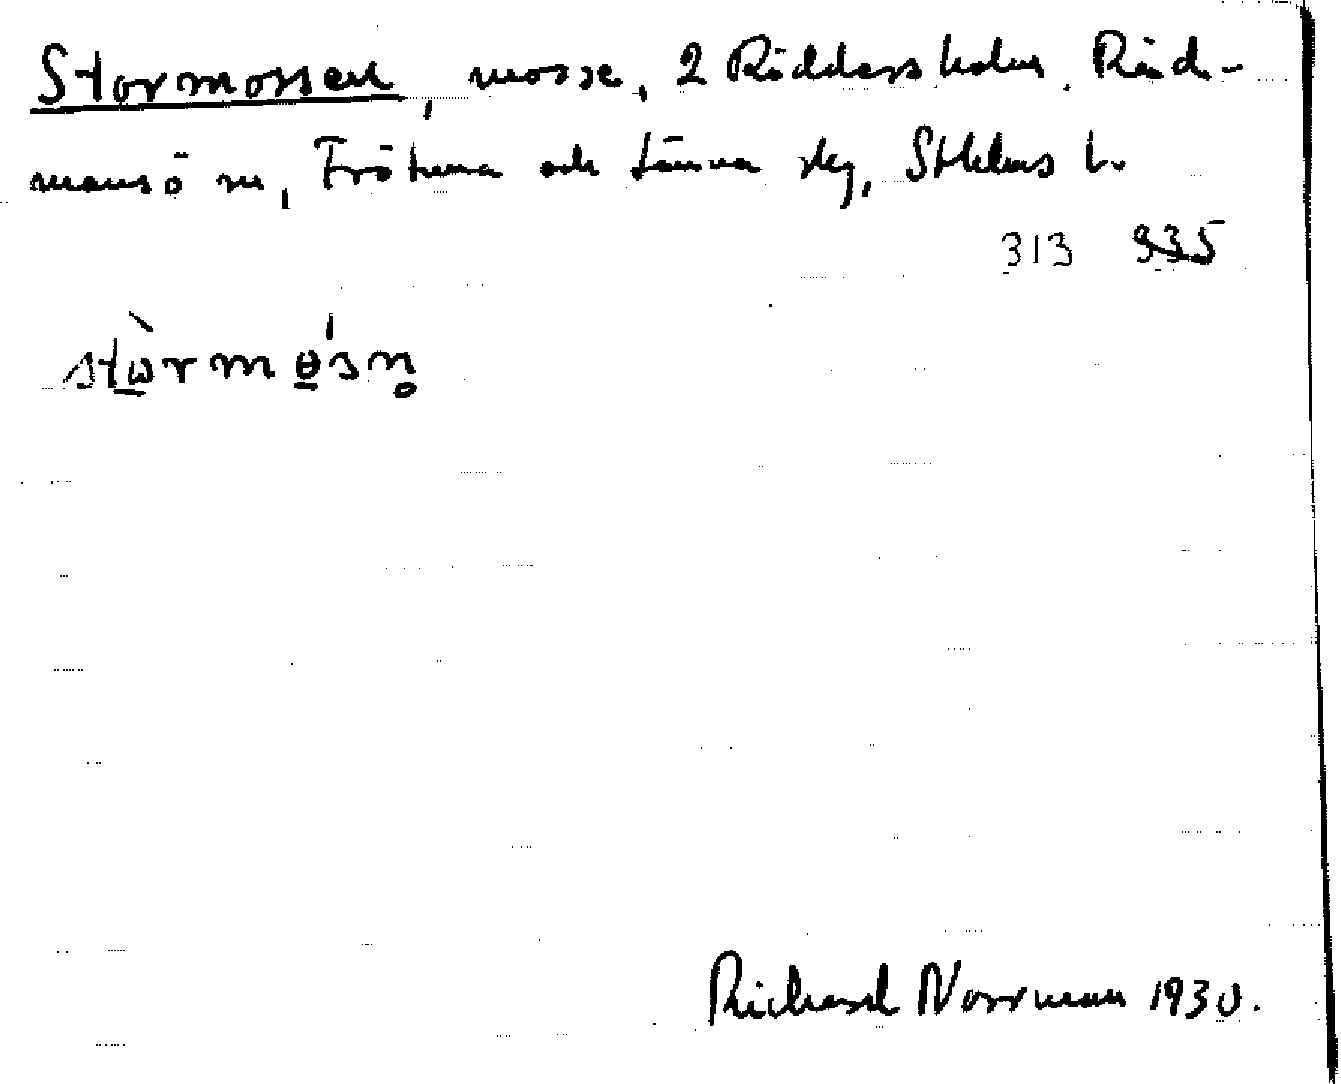 Stormossen, mosse, 2 Riddersholm. Råd-
mansö sn, Frötuna och Länna skg, Sthlms l.
313 935
stώrmɵ́sn̥
Richard Norrman 1930.